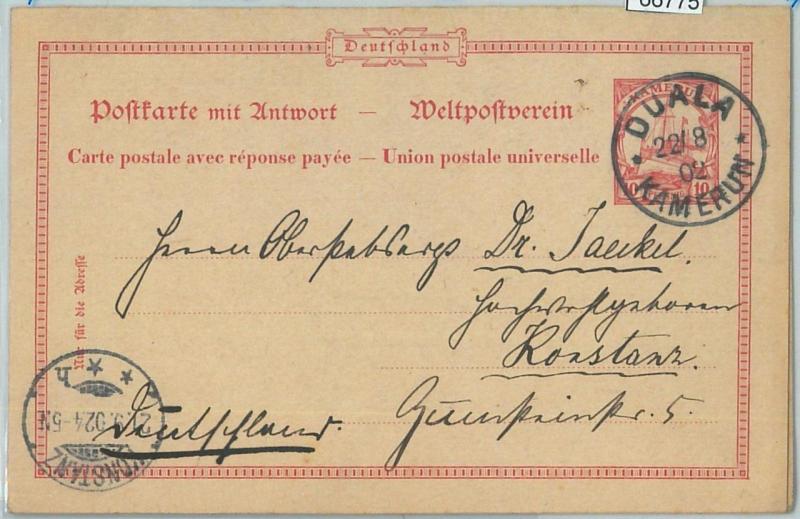 66775
Deutschland
Postkarte mit Antwort — Weltpostverein
Carte postale avec réponse payée — Union postale universelle
KAMERUN
10 10
DUALA
22/8
02
KAMERUN
Herrn Oberstabsarzt Dr. Jaeckel.
Hochwohlgeboren
Konstanz.
Deutschland.
5.
Nur für die Adresse
KONSTANZ